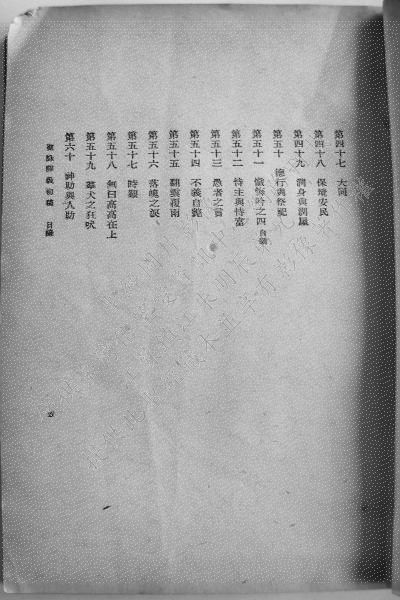 第四十七 大同
第四十八 保境安民
第四十九 潤身與潤屋
第五十 德行與祭祀
第五十一 懺悔吟之四 自懺
第五十二 恃主與恃富
第五十三 愚者之言
第五十四 不義自斃
第五十五 翻雲覆雨
第五十六 落魄之淚
第五十七 時艱
第五十八 無曰高高在上
第五十九 羣犬之狂吠
第六十 神助與人助
聖詠譯義初稿 目錄